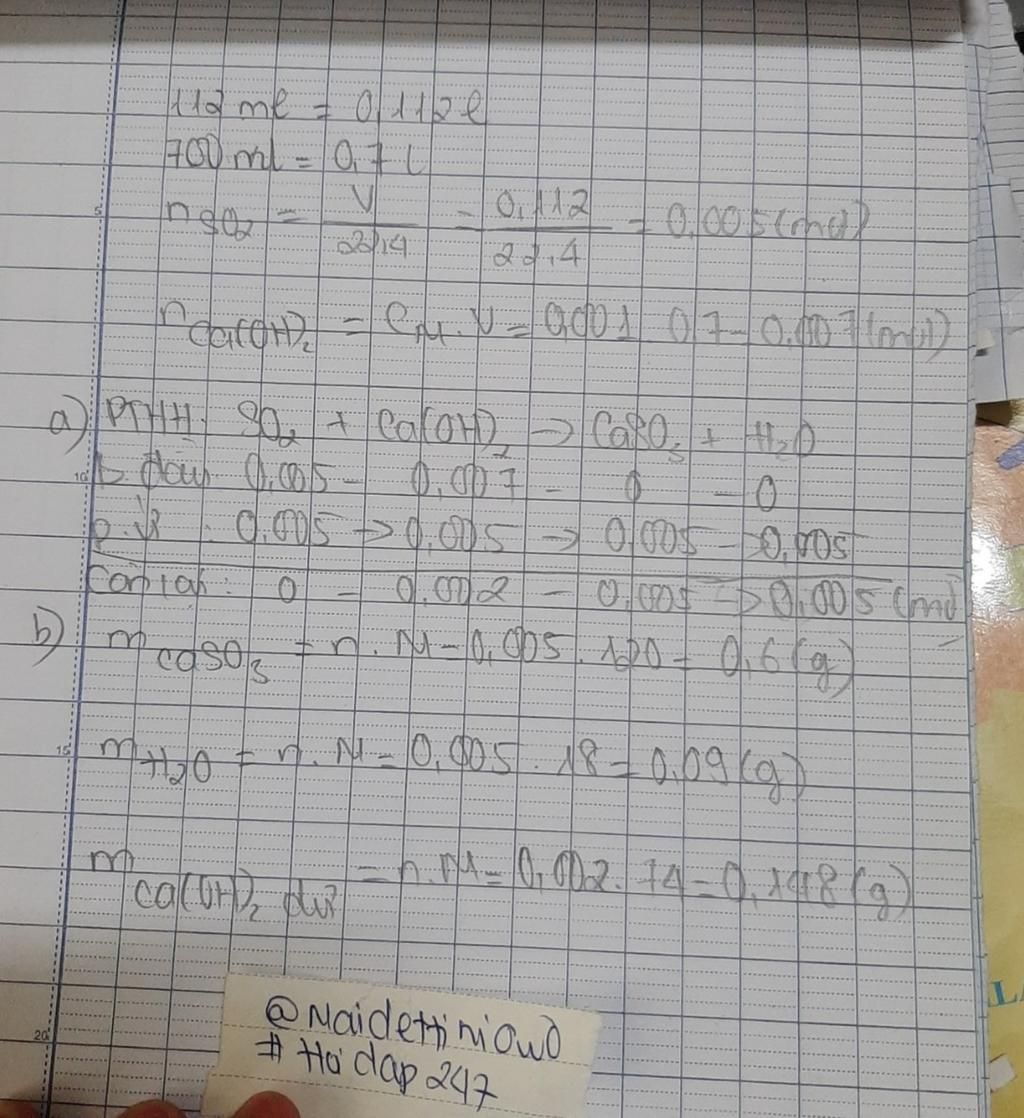 112 ml = 0,112 l
700 ml = 0,7 l
nSO₂ = V/22,4 = 0,112/22,4 = 0,005 (mol)
nCa(OH)₂ = CM . V = 0,001 . 0,7 = 0,007 (mol)
a) PTHH: SO₂ + Ca(OH)₂ → CaSO₃ + H₂O
b. đầu: 0,005 - 0,007 - 0 - 0
p.ứ : 0,005 → 0,005 → 0,005 → 0,005
Còn lại: 0 - 0,002 - 0,005 → 0,005 (mol)
b) mCaSO₃ = n . M = 0,005 . 120 = 0,6 (g)
mH₂O = n . M = 0,005 . 18 = 0,09 (g)
mCa(OH)₂ dư = n . M = 0,002 . 74 = 0,148 (g)
@Maidettiniowo
# Hoidap247
5
10
15
20